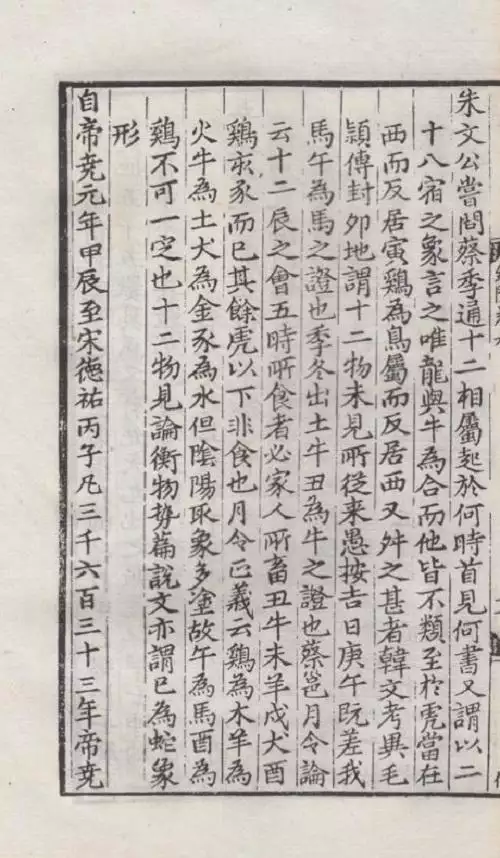 朱文公嘗問蔡季通十二相屬起於何時首見何書又謂以二
十八宿之象言之唯龍與牛為合而他皆不類至於虎當在
西而反居寅鷄為鳥屬而反居西又舛之甚者韓文考異毛
頴傳封夘地謂十二物未見所從来愚按吉日庚午既差我
馬午為馬之證也季冬出土牛丑為牛之證也蔡邕月令論
云十二辰之會五時所食者必家人所畜丑牛未羊戌犬酉
鷄亥豕而已其餘虎以下非食也月令正義云鷄為木羊為
火牛為土犬為金豕為水但陰陽取象多塗故午為馬酉為
鷄不可一定也十二物見論衡物勢篇說文亦謂巳為蛇象
形
自帝尭元年甲辰至宋德祐丙子凡三千六百三十三年帝尭